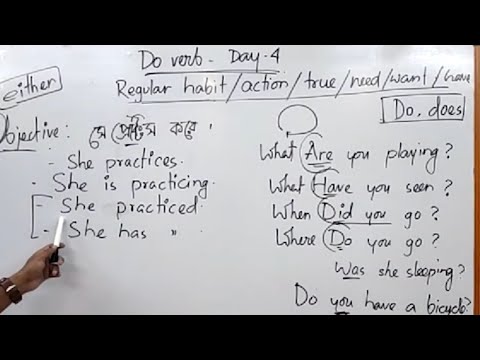 Do verb - Day - 4
either
Regular habit/action/true/need/want/have
Do, does
Objective: সে প্রেক্টিস করে ।
- She practices.
- She is practicing.
- She practiced.
- She has "
What Are you playing?
What Have you seen?
When Did you go?
Where Do you go?
Was she sleeping?
Do you have a bicycle?